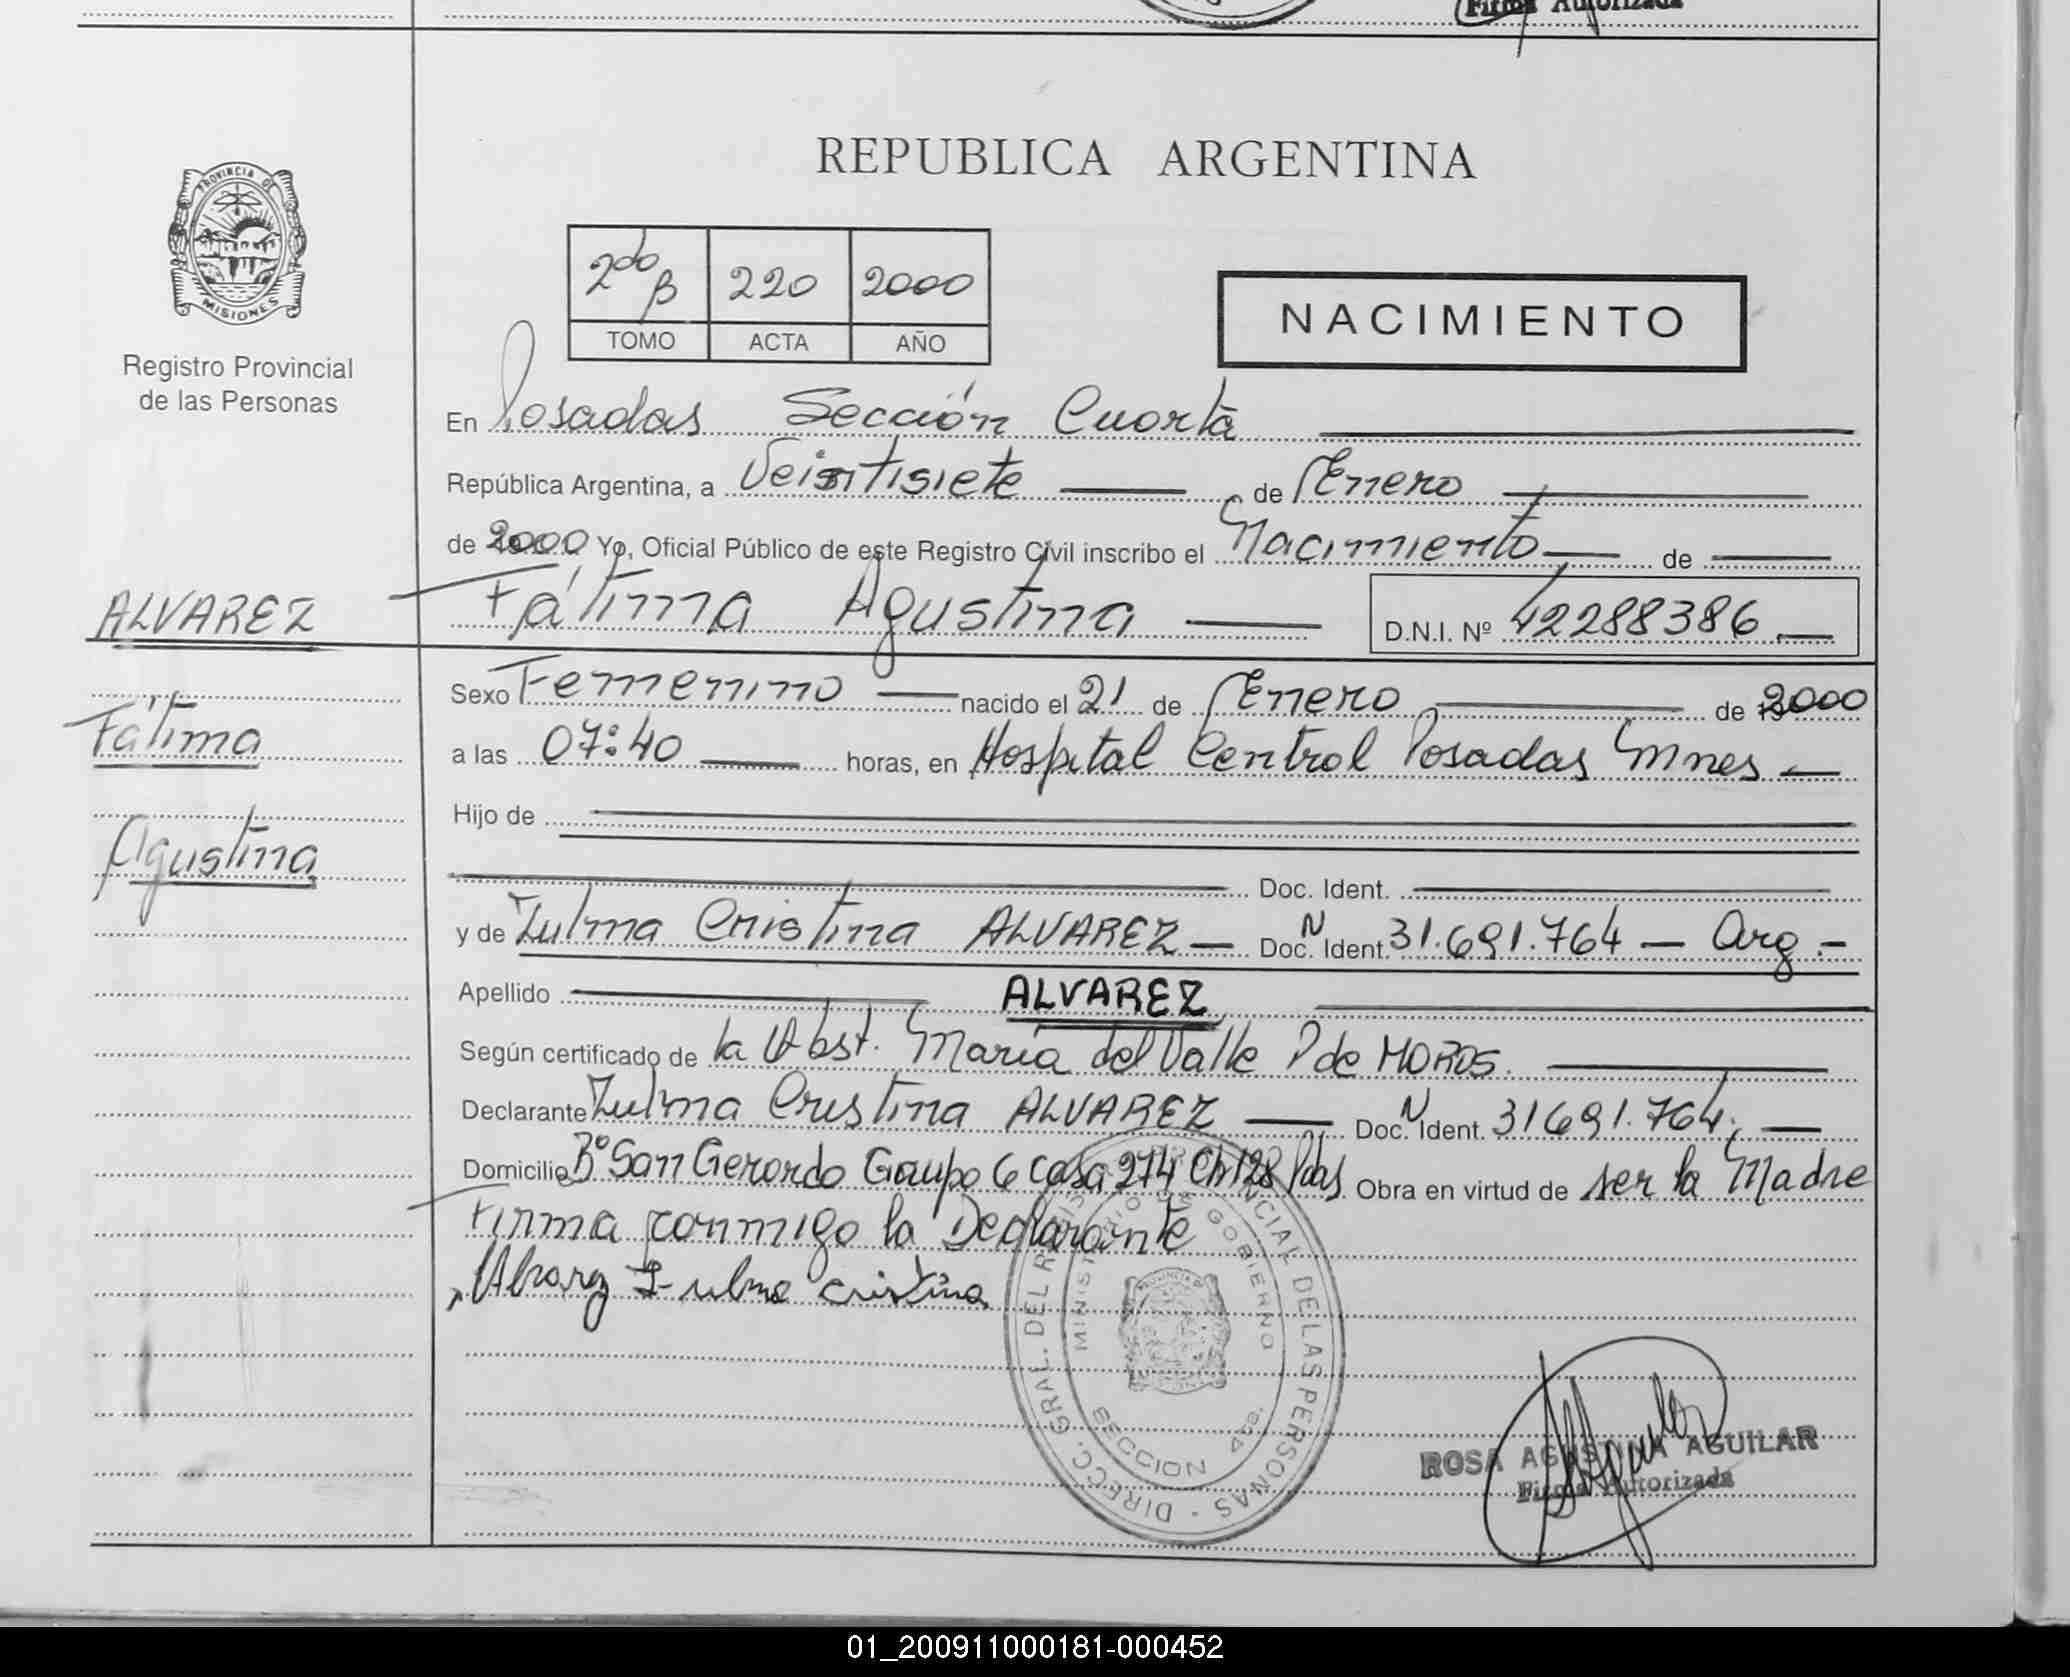 Firma Autorizada
REPUBLICA ARGENTINA
PROVINCIA DE
MISIONES
Registro Provincial
de las Personas
2do B 220 2000
TOMO ACTA AÑO
NACIMIENTO
En Posadas Sección Cuarta
República Argentina, a Veintisiete de Enero
de 2000 Yo, Oficial Público de este Registro Civil inscribo el Nacimiento de
ALVAREZ
Fátima Agustina D.N.I. Nº 42288386
Sexo Femenino nacido el 21 de Enero de 2000
Fátima
a las 07:40 horas, en Hospital Central Posadas Mnes
Hijo de
Agustina
Doc. Ident.
y de Zulma Cristina ALVAREZ Doc. N Ident. 31.691.764 Arg.
Apellido ALVAREZ
Según certificado de la Obst. María del Valle P de MOROS.
Declarante Zulma Cristina ALVAREZ Doc. N Ident. 31691.764
Domicilio Bº San Gerardo Grupo 6 Casa 274 Ch 128 Pdas Obra en virtud de ser la Madre
Firma conmigo la Declarante
Alvarez Zulma Cristina
DIRECC. GRAL. DEL REGISTRO PROVINCIAL DE LAS PERSONAS
MINISTERIO DE GOBIERNO
SECCION 4ta.
ROSA AGUSTINA AGUILAR
Firma Autorizada
01_200911000181-000452